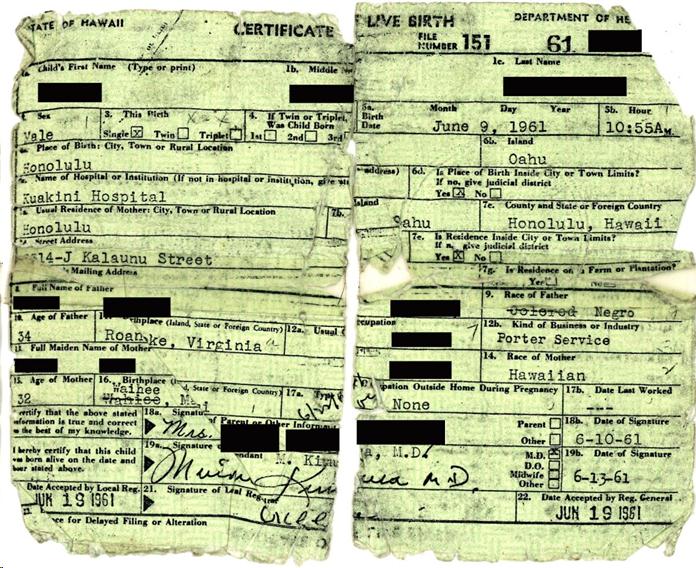 TATE OF HAWAII CERTIFICATE LIVE BIRTH DEPARTMENT OF HE
FILE NUMBER 151 61
Child's First Name (Type or print) 1b. Middle 1c. Last Name
Sex 3. This Birth 4. If Twin or Triplet, Was Child Born 5a. Birth Date Month Day Year 5b. Hour
Male Single X Twin Triplet 1st 2nd 3rd June 9, 1961 10:55AM.
Place of Birth: City, Town or Rural Location 6b. Island
Honolulu Oahu
Name of Hospital or Institution (If not in hospital or institution, give address) 6d. Is Place of Birth Inside City or Town Limits? If no, give judicial district
Kuakini Hospital Yes X No
Usual Residence of Mother: City, Town or Rural Location 7b. Island 7c. County and State or Foreign Country
Honolulu Oahu Honolulu, Hawaii
Street Address 7e. Is Residence Inside City or Town Limits? If no, give judicial district
614-J Kalaunu Street Yes X No
Mailing Address 7g. Is Residence on a Farm or Plantation?
Yes No
8. Full Name of Father 9. Race of Father
Colored Negro
10. Age of Father Birthplace (Island, State or Foreign Country) 12a. Usual Occupation 12b. Kind of Business or Industry
34 Roanoke, Virginia Porter Service
13. Full Maiden Name of Mother 14. Race of Mother
Hawaiian
15. Age of Mother 16. Birthplace (Island, State or Foreign Country) 17a. Type Occupation Outside Home During Pregnancy 17b. Date Last Worked
32 Waihee None ---
certify that the above stated information is true and correct to the best of my knowledge. 18a. Signature of Parent or Other Informant Parent Other 18b. Date of Signature
Mrs. 6-10-61
I hereby certify that this child was born alive on the date and hour stated above. 19a. Signature of Attendant M. , M.D. M.D. X D.O. Midwife Other 19b. Date of Signature
M.D. 6-13-61
Date Accepted by Local Reg. 21. Signature of Local Registrar 22. Date Accepted by Reg. General
JUN 19 1961 JUN 19 1961
ce for Delayed Filing or Alteration